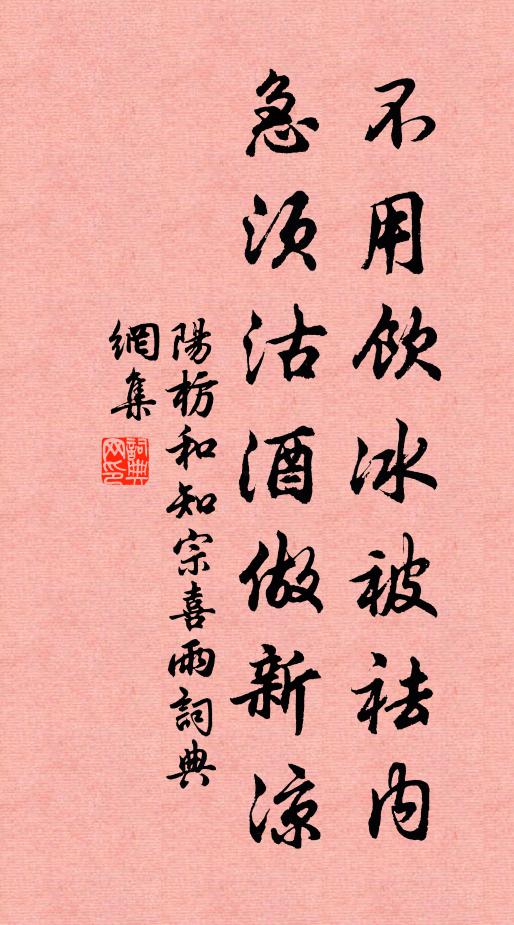 不用飲冰被祛內
急須沽酒做新涼
陽枋和知宗喜雨詞典
網集
詞典
网印